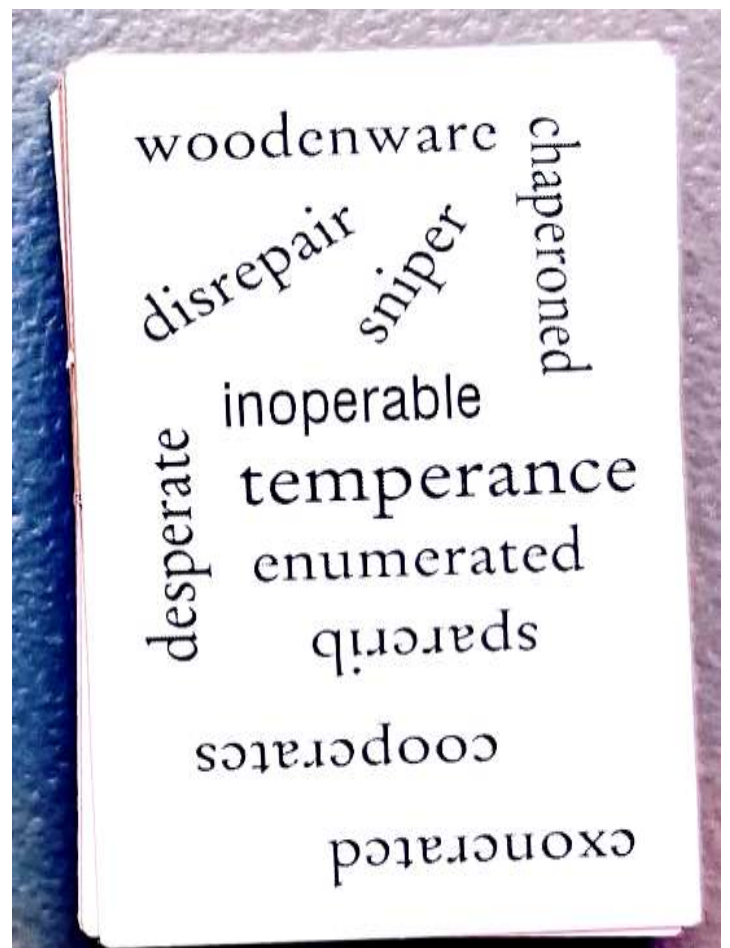 woodenware
chaperoned
disrepair
sniper
inoperable
desperate
temperance
enumerated
sparerib
cooperates
exonerated